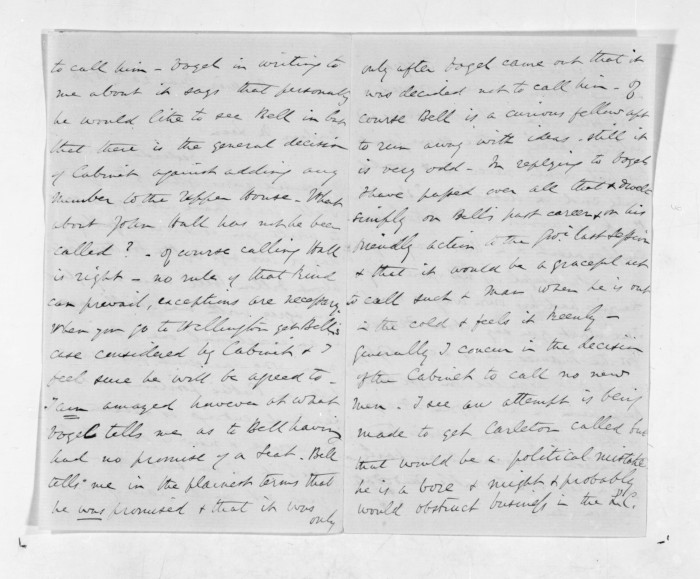 to call him - Vogel in writing to
me about it says that personally
he would like to see Bell in but
that there is the general decision
of Cabinet against adding any
Member to the Upper House - What
about John Hall has not he been
called? - of course calling Hall
is right - no rule of that kind
can prevail, exceptions are necessary.
When you go to Wellington get Bell's
case considered by Cabinet & I
feel sure he will be agreed to -
I am amazed however at what
Vogel tells me as to Bell having
had no promise of a Seat - Bell
tells me in the plainest terms that
he was promised & that it was
only
only after Vogel came out that it
was decided not to call him - of
course Bell is a curious fellow apt
to run away with ideas - still it
is very odd - In replying to Vogel
I have passed over all that & dwelt
simply on Bell's past career & on his
friendly action to the Govt last Session
& that it would be a graceful act
to call such a Man when he is out
in the cold & feels it keenly -
Generally I concur in the decision
of the Cabinet to call no new
Men - I see an attempt is being
made to get Carleton called but
that would be a political mistake
he is a bore & might & probably
would obstruct business in the L.C.